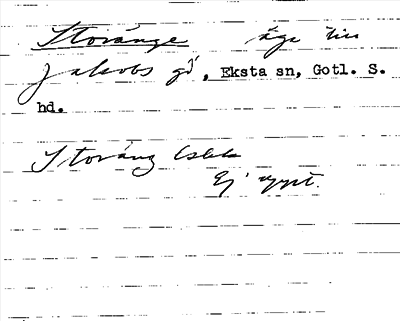 Storänge äga till
Jakobs gd, Eksta sn, Gotl. S.
hd.
Storäng
Ej uppt.